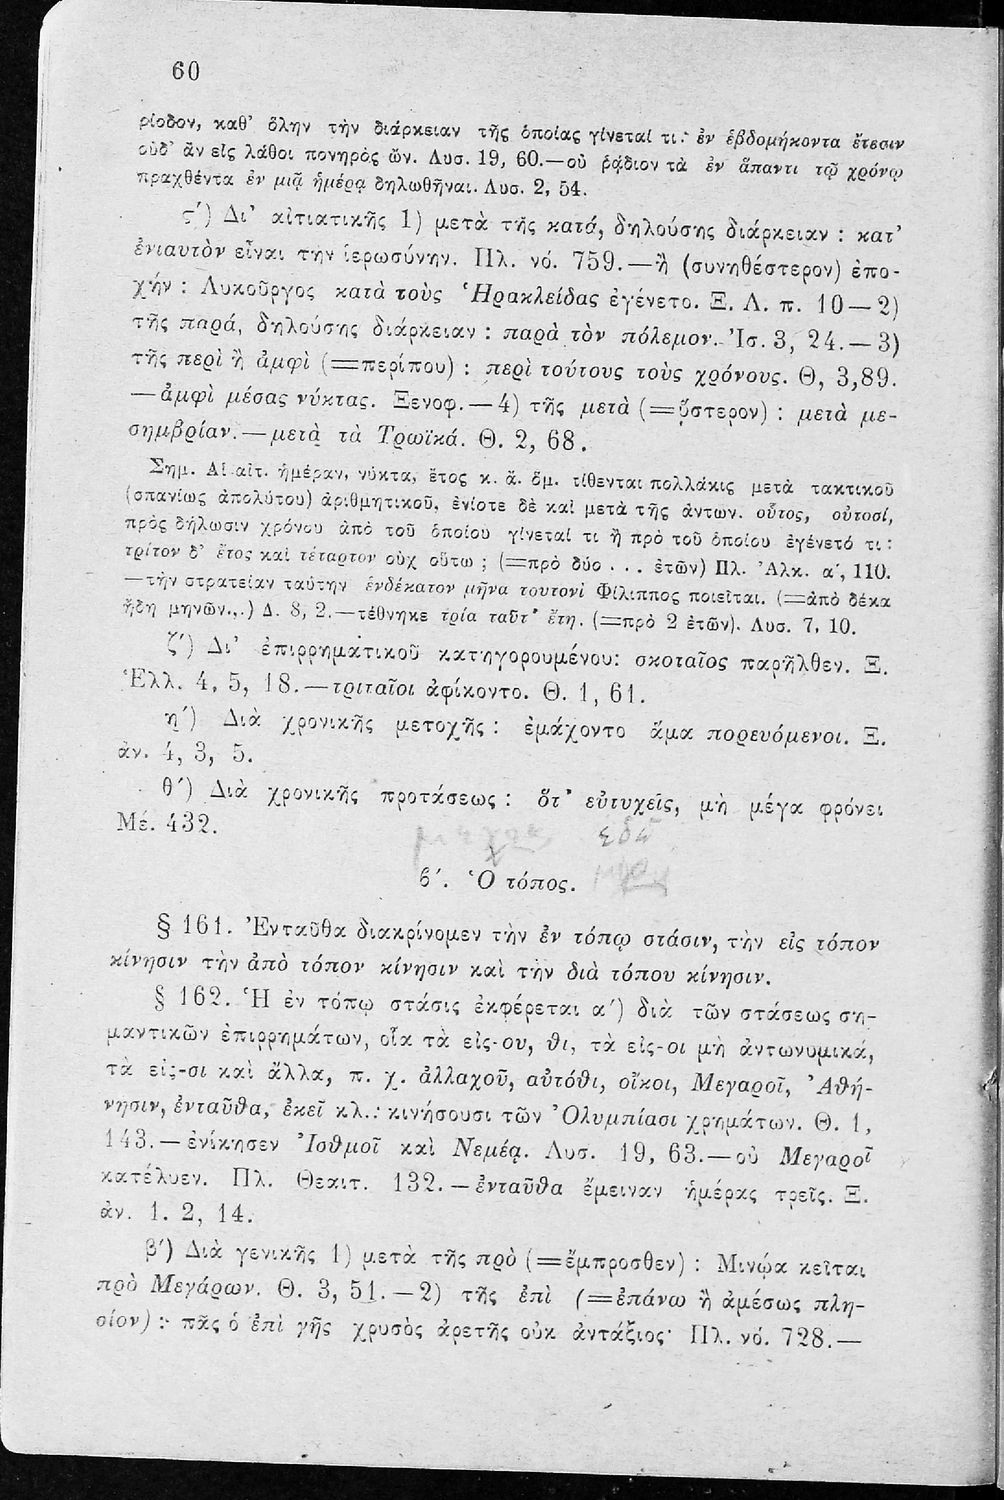 60
ρίοδον, καθ' ὅλην τὴν διάρκειαν τῆς ὁποίας γίνεταί τι: ἐν ἑβδομήκοντα ἔτεσιν
οὐδ' ἂν εἷς λάθοι πονηρὸς ὤν. Λυσ. 19, 60.—οὐ ῥᾴδιον τὰ ἐν ἅπαντι τῷ χρόνῳ
πραχθέντα ἐν μιᾷ ἡμέρᾳ δηλωθῆναι. Λυσ. 2, 54.
ς') Δι' αἰτιατικῆς 1) μετὰ τῆς κατά, δηλούσης διάρκειαν : κατ'
ἐνιαυτὸν εἶναι τὴν ἱερωσύνην. Πλ. νό. 759.—ἢ (συνηθέστερον) ἐπο-
χήν : Λυκοῦργος κατὰ τοὺς Ἡρακλείδας ἐγένετο. Ξ. Λ. π. 10—2)
τῆς παρά, δηλούσης διάρκειαν : παρὰ τὸν πόλεμον. Ἰσ. 3, 24.—3)
τῆς περὶ ἢ ἀμφὶ (=περίπου) : περὶ τούτους τοὺς χρόνους. Θ, 3,89.
—ἀμφὶ μέσας νύκτας. Ξενοφ.—4) τῆς μετὰ (=ὕστερον) : μετὰ με-
σημβρίαν.—μετὰ τὰ Τρωϊκά. Θ. 2, 68.
Σημ. Αἱ αἰτ. ἡμέραν, νύκτα, ἔτος κ. ἄ. ὅμ. τίθενται πολλάκις μετὰ τακτικοῦ
(σπανίως ἀπολύτου) ἀριθμητικοῦ, ἐνίοτε δὲ καὶ μετὰ τῆς ἀντων. οὗτος, οὑτοσί,
πρὸς δήλωσιν χρόνου ἀπὸ τοῦ ὁποίου γίνεταί τι ἢ πρὸ τοῦ ὁποίου ἐγένετό τι :
τρίτον δ' ἔτος καὶ τέταρτον οὐχ οὕτω ; (=πρὸ δύο . . . ἐτῶν) Πλ. Ἀλκ. α', 110.
—τὴν στρατείαν ταύτην ἑνδέκατον μῆνα τουτονὶ Φίλιππος ποιεῖται. (=ἀπὸ δέκα
ἤδη μηνῶν...) Δ. 8, 2.—τέθνηκε τρία ταῦτ' ἔτη. (=πρὸ 2 ἐτῶν). Λυσ. 7, 10.
ζ') Δι' ἐπιρρηματικοῦ κατηγορουμένου: σκοταῖος παρῆλθεν. Ξ.
Ἑλλ. 4, 5, 18.—τριταῖοι ἀφίκοντο. Θ. 1, 61.
η') Διὰ χρονικῆς μετοχῆς : ἐμάχοντο ἅμα πορευόμενοι. Ξ.
ἀν. 4, 3, 5.
θ') Διὰ χρονικῆς προτάσεως : ὅτ' εὐτυχεῖς, μὴ μέγα φρόνει
Μέ. 432.
β'. Ὁ τόπος.
§ 161. Ἐνταῦθα διακρίνομεν τὴν ἐν τόπῳ στάσιν, τὴν εἰς τόπον
κίνησιν τὴν ἀπὸ τόπον κίνησιν καὶ τὴν διὰ τόπου κίνησιν.
§ 162. Ἡ ἐν τόπῳ στάσις ἐκφέρεται α') διὰ τῶν στάσεως ση-
μαντικῶν ἐπιρρημάτων, οἷα τὰ εἰς-ου, θι, τὰ εἰς-οι μὴ ἀντωνυμικά,
τὰ εἰς-σι καὶ ἄλλα, π. χ. ἀλλαχοῦ, αὐτόθι, οἴκοι, Μεγαροῖ, Ἀθή-
νησιν, ἐνταῦθα, ἐκεῖ κλ.: κινήσουσι τῶν Ὀλυμπίασι χρημάτων. Θ. 1,
143.—ἐνίκησεν Ἰσθμοῖ καὶ Νεμέᾳ. Λυσ. 19, 63.—οὐ Μεγαροῖ
κατέλυεν. Πλ. Θεαιτ. 132.—ἐνταῦθα ἔμειναν ἡμέρας τρεῖς. Ξ.
ἀν. 1. 2, 14.
β') Διὰ γενικῆς 1) μετὰ τῆς πρὸ (=ἔμπροσθεν) : Μινῴα κεῖται
πρὸ Μεγάρων. Θ. 3, 51.—2) τῆς ἐπὶ (=ἐπάνω ἢ ἀμέσως πλη-
σίον) : πᾶς ὁ ἐπὶ γῆς χρυσὸς ἀρετῆς οὐκ ἀντάξιος· Πλ. νό. 728.—